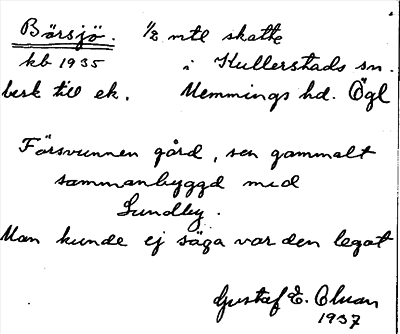 Börsjö. 1/2 mtl skatte
kb 1935 i Kullerstads sn.
besk till ek. Memmings hd. Ögl
Försvunnen gård, sen gammalt
sammanbyggd med
Lundby.
Man kunde ej säga var den legat
Gustaf E.
1937